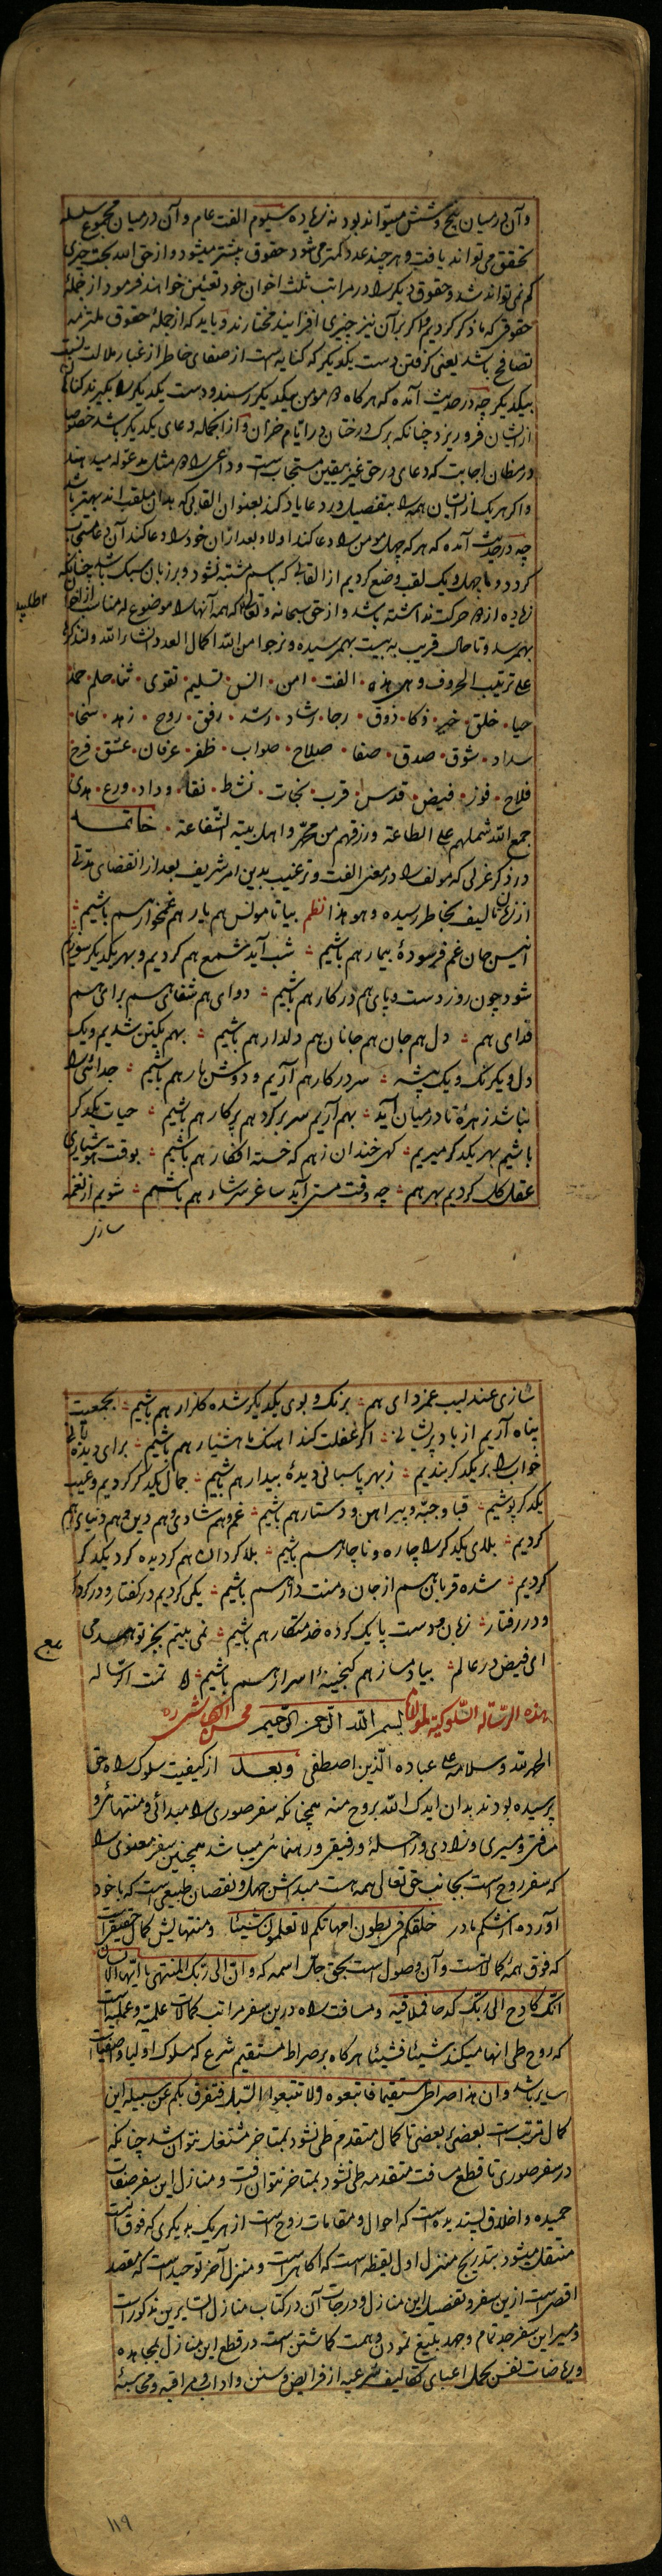 وآن در میان پنج و شش میتواند بود نه زیاده سیوم الفت عام وآن در میان مجموع سلسله
تحقق می تواند یافت و هر چند عدد کمتر می شود حقوق بیشتر میشود و از حق الله بجهت چیزی
کم نمی تواند شد و حقوق دیگر را در مراتب ثلث اخوان خود تعیین خواهند فرمود از جملهٔ
حقوقی که ما ذکر کردیم و اگر بر آن نیز چیزی افزایند مختارند و باید که از جملهٔ حقوق ملتزمه
تصافح باشد یعنی گرفتن دست یکدیگر که کنایه است از صفای خاطر از غبار ملالت نسبت
بیکدیگر چه در حدیث آمده که هر گاه دو مومن بیکدیگر رسند و دست یکدیگر را بگیرند گناهان
از ایشان فرو ریزد چنانکه برگ درختان در ایام خزان و از آنجمله دعای یکدیگر باشد خصوصا
در مظان اجابت که دعای در حق غیر بیقین مستجاب است و داعی را دو مثل مدعوله میدهند
و اگر هر یک از ایشان همه را بتفصیل در دعا یاد کند بعنوان القابی که بدان ملقب اند بهتر باشد
چه در حدیث آمده که هر که چهل مومن را دعا کند اولا و بعد از آن خود را دعا کند آن دعا مستجاب
گردد و ما چهل و یک لقب وضع کردیم از القابی که باسم مشتبه نشود و بر زبان سبک باشد چنانکه
زیاده از دو حرکت نداشته باشد و از حق سبحانه و تعالی که همه آنها را موضوع له مناسب از اخوان
بهم رسد و تا حال قریب به بیست بهم رسیده و نرجوا من الله اکمال العدد انشاء الله ولنذکرها
علی ترتیب الحروف وهی هذه ٠ الفت ٠ امن ٠ انس ٠ تسلیم ٠ تقوی ٠ ثنا ٠ حلم ٠ حمد
حیا ٠ خلق ٠ خیر ٠ ذکا ٠ ذوق ٠ رجا ٠ رشاد ٠ رشد ٠ رفق ٠ روح ٠ زهد ٠ سخا ٠
سداد ٠ شوق ٠ صدق ٠ صفا ٠ صلاح ٠ صواب ٠ ظفر ٠ عرفان ٠ عشق ٠ فرح
فلاح ٠ فوز ٠ فیض ٠ قدس ٠ قرب ٠ نجات ٠ نشط ٠ نقا ٠ وداد ٠ ورع ٠ هدی
جمع الله شملهم علی الطاعة ورزقهم من محمد واهل بیته الشفاعة ٠ خاتمه
در ذکر غزلی که مولف را در معنی الفت و ترغیب بدین امر شریف بعد از انقضای مدتی
از زمان تالیف بخاطر رسیده وهو هذا نظم بیا تا مونس هم یار هم غمخوار هم باشیم
انیس جان غم فرسودهٔ بیمار هم باشیم شب آید شمع هم گردیم و بهر یکدیگر سوزیم
شود چون روز دست و پای هم در کار هم باشیم دوای هم شفای هم برای هم
فدای هم دل هم جان هم جانان هم دلدار هم باشیم بهم یکتن شدیم و یک
دل و یکرنگ و یک پیشه سر در کار هم آریم و دوش بار هم باشیم جدائی را
نباشد زهرهٔ تا در میان آید بهم آریم سر بر گرد هم پرکار هم باشیم حیات یکدیگر
باشیم بهر یکدگر میریم گهی خندان ز هم گه خسته افگار هم باشیم بوقت هوشیاری
عقل کل گردیم بهر هم چه وقت مستی آید ساغر سرشار هم باشیم شویم از نغمه
سازی
سازی عندلیب غمزدای هم برنگ و بوی یکدیگر شده گلزار هم باشیم بجمعیت
پناه آریم از باد پریشانی اگر غفلت کند آهنگ ما هشیار هم باشیم برای دیده بانی
خواب را بر یکدگر بندیم ز بهر پاسبانی دیدهٔ بیدار هم باشیم جمال یکدگر گردیم و عیب
یکدگر پوشیم قبا و جبه و پیراهن و دستار هم باشیم غم هم شادی هم دین هم دنیای هم
گردیم بلای یکدگر را چاره و ناچار هم باشیم بلا گردان هم گردیده گرد یکدگر
گردیم شده قربان هم از جان و منت دار هم باشیم یکی گردیم در گفتار و در کردار
و در رفتار زبان و دست و پا یک کرده خدمتکار هم باشیم نمی بینم بجز تو همدمی
ای فیض در عالم بیا دمساز هم گنجینهٔ اسرار هم باشیم تمت الرساله
هذه الرسالة السلوکیة لمولانا بسم الله الرحمن الرحیم محسن الکاشی ره
الحمد لله وسلام علی عباده الذین اصطفی وبعد از کیفیت سلوک راه حق
پرسیده بودند بدان ایدک الله بروح منه همچنانکه سفر صوری را مبدائی و منتهائی و
مسافتی و مسیری و زادی و راحلهٔ و رفیقی و رهنمائی میباشد همچنین سفر معنوی را
که سفر روح است بجانب حق تعالی همه هست مبدأش جهل و نقصان طبیعی است که با خود
آورده از شکم مادر خلقکم فی بطون امهاتکم لا تعلمون شیئا ومنتهایش کمال حقیقی است
که فوق همهٔ کمالاتست و آن وصول است بحق جل اسمه که وان الی ربک المنتهی یا ایها الانسان
انک کادح الی ربک کدحا فملاقیه و مسافت راه درین سفر مراتب کمالات علمیه و عملیه است
که روح طی انها میکند شیئا فشیئا هر گاه بر صراط مستقیم شرع که مسلوک اولیا و اصفیاست
سایر باشد وان هذا صراطی مستقیما فاتبعوه ولا تتبعوا السبل فتفرق بکم عن سبیله این
کمال مرتب است بعضی بر بعضی تا کمال متقدم طی نشود بمتاخر منتقل نتوان شد چنانکه
در سفر صوری تا قطع مسافت متقدمه طی نشود بمتاخر نتوان رفت و منازل این سفر صفات
حمیده و اخلاق پسندیده است که احوال و مقامات روح است از هر یک بدیگری که فوق آنست
منتقل میشود بتدریج منزل اول یقظه است که آگاهی است و منزل آخر توحید است که مقصد
اقصی است ازین سفر و تفصیل این منازل و درجات آن در کتاب منازل السایرین مذکور است
و مسیر این سفر جد تمام و جهد بلیغ نمودن و همت گماشتن است در قطع این منازل بمجاهده
و ریاضات نفس بحمل اعبای تکالیف شرعیه از فرایض و سنن و اداب و مراقبه و محاسبهٔ
١١٩